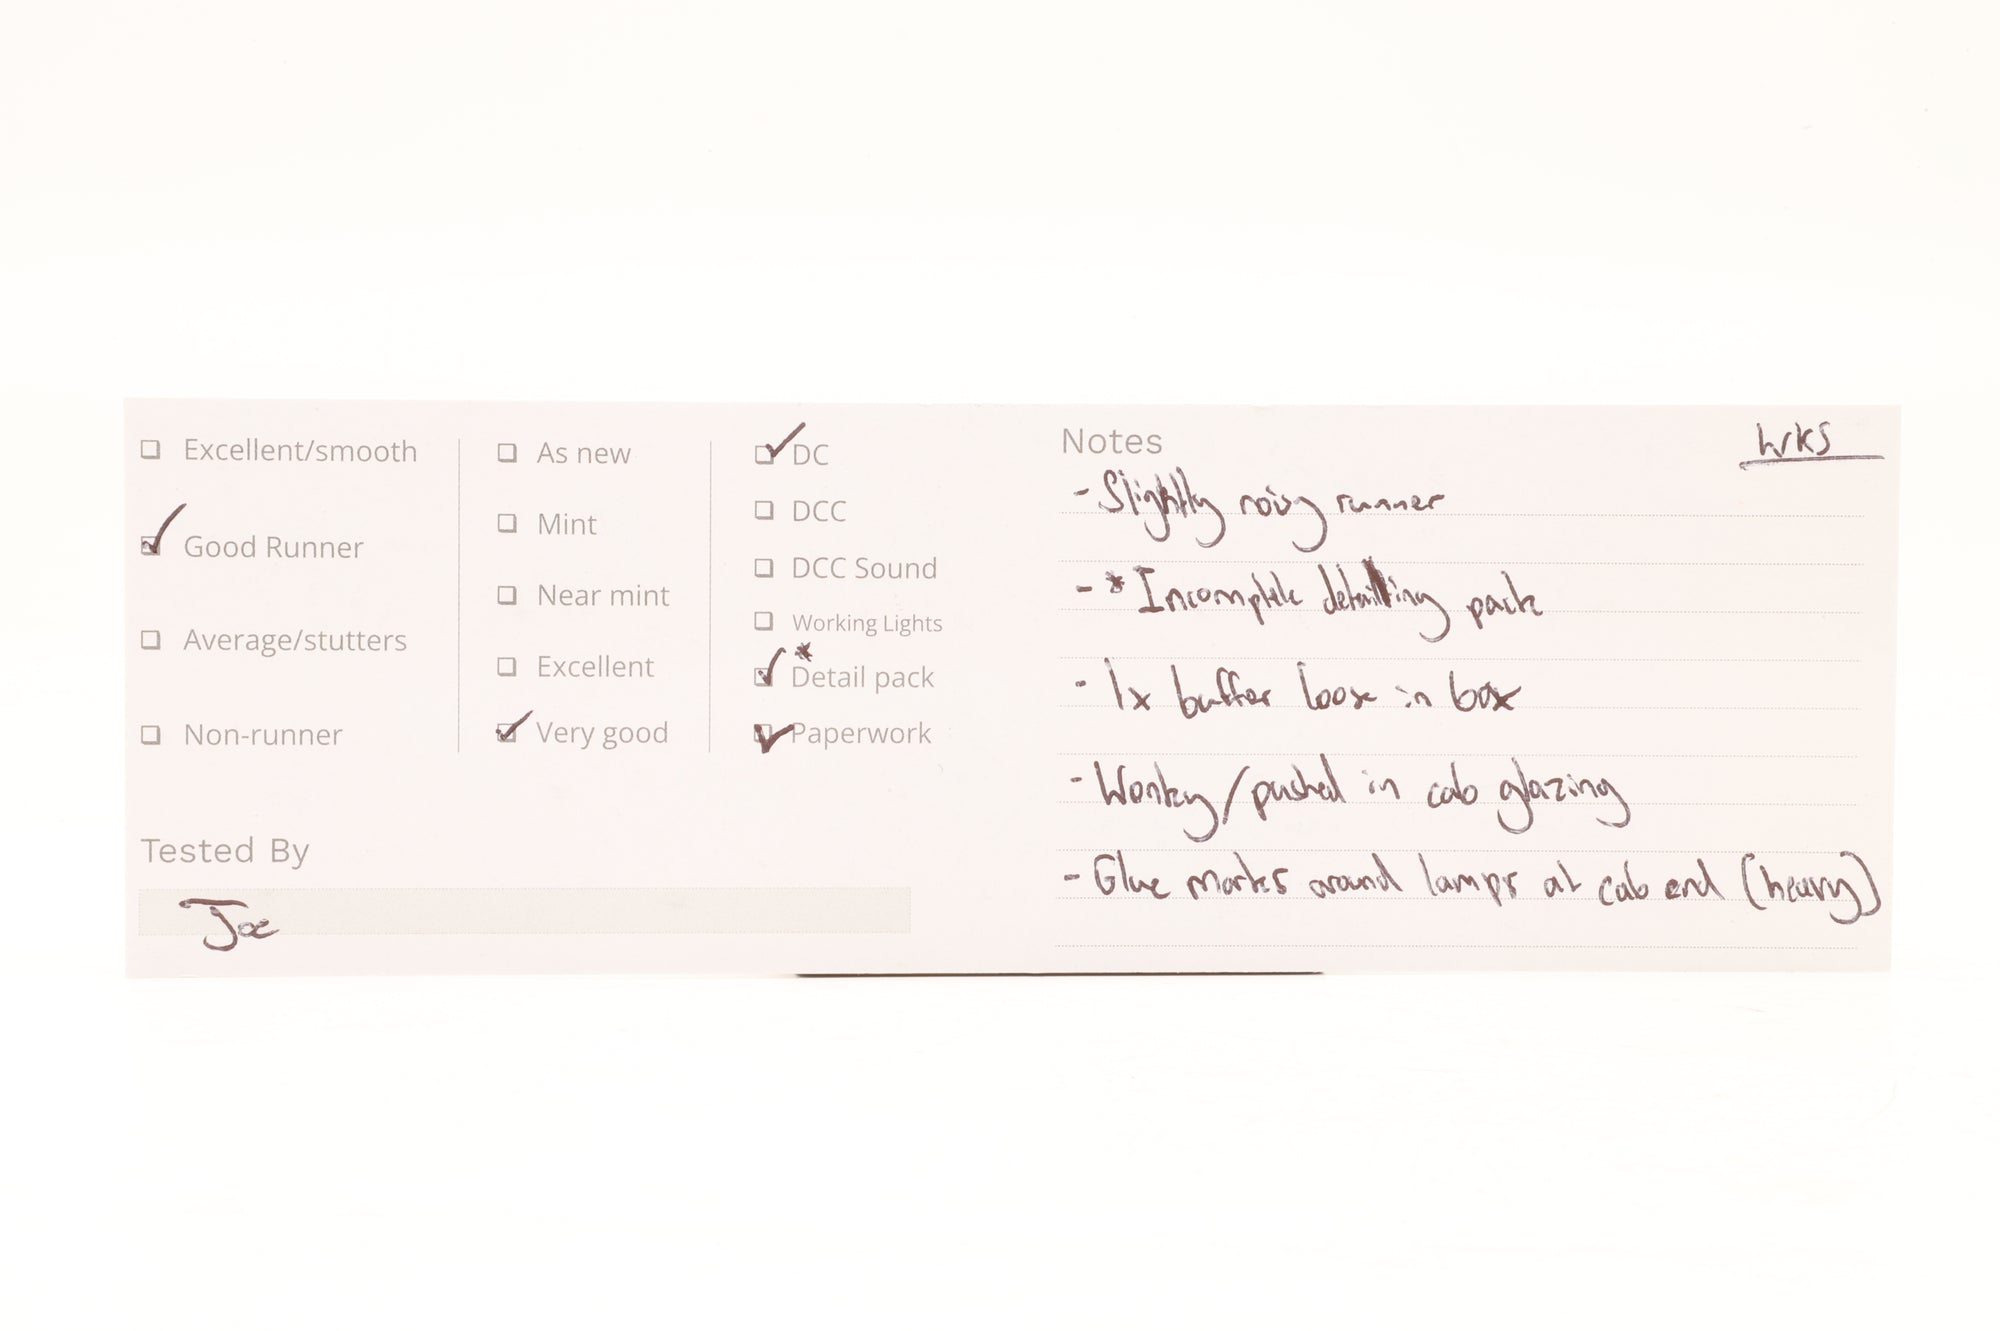 ☐ Excellent/smooth
☑ Good Runner
☐ Average/stutters
☐ Non-runner
☐ As new
☐ Mint
☐ Near mint
☐ Excellent
☑ Very good
☑ DC
☐ DCC
☐ DCC Sound
☐ Working Lights
☑ Detail pack *
☑ Paperwork
Tested By
Joe
Notes
WKS
- Slightly noisy runner
- * Incomplete detailing pack
- 1x buffer loose in box
- Wonky/pushed in cab glazing
- Glue marks around lamps at cab end (heavy)